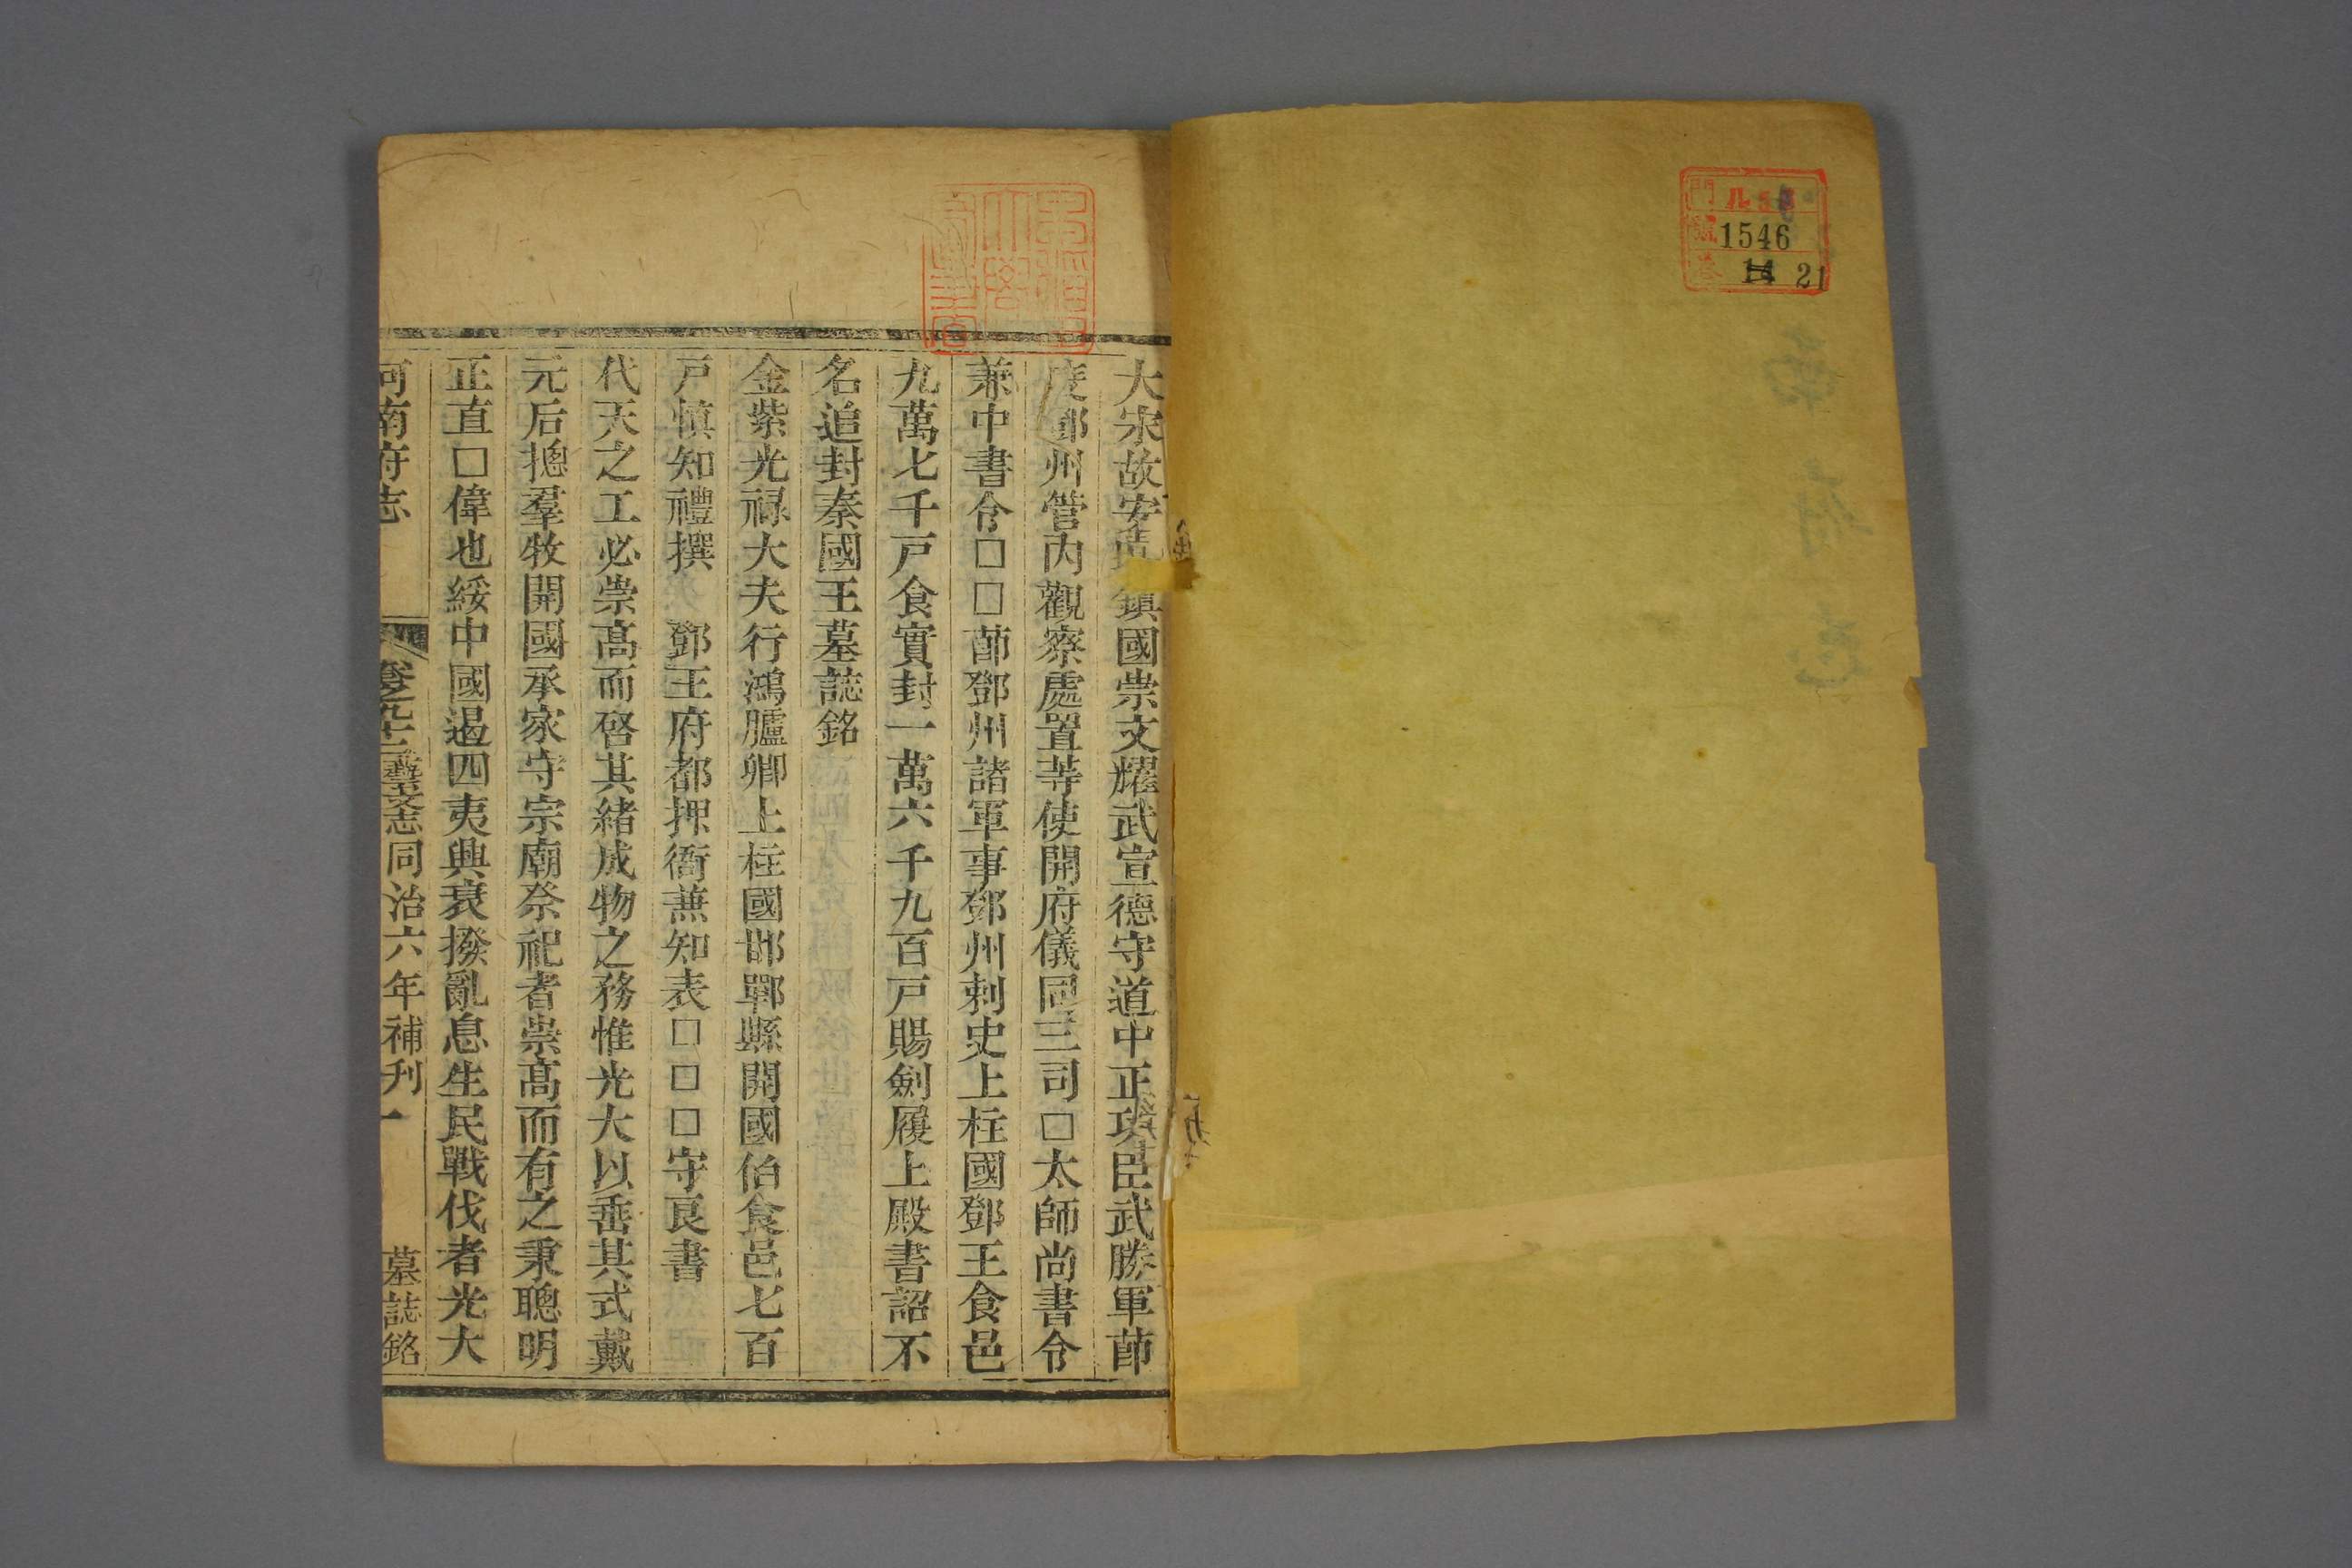 門 ル 5
號 1546
卷 14 21
大宋故安 鎮國崇文耀武宣德守道中正功臣武勝軍節
度鄧州管内觀察處置等使開府儀同三司□太師尚書令
兼中書令□□節鄧州諸軍事鄧州刺史上柱國鄧王食邑
九萬七千戸食實封一萬六千九百戸賜劍履上殿書詔不
名追封秦國王墓誌銘
金紫光祿大夫行鴻臚卿上柱國邯鄲縣開國伯食邑七百
戸慎知禮撰 鄧王府都押衙兼知表□□□守良書
代天之工必崇高而啓其緒成物之務惟光大以垂其式戴
元后摠羣牧開國承家守宗廟祭祀者崇高而有之秉聰明
正直□偉也綏中國遏四夷興衰撥亂息生民戰伐者光大
河南府志 卷之 藝文志同治六年補刋 一 墓誌銘